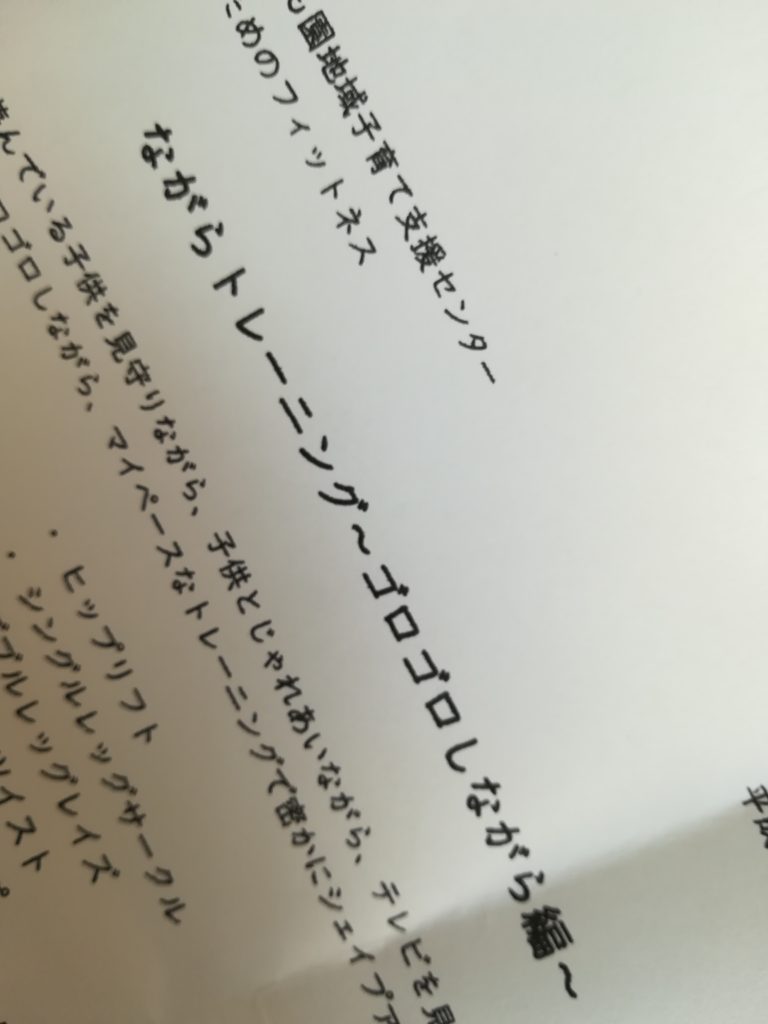 平成
園地域子育て支援センター
ためのフィットネス
ながらトレーニング～ゴロゴロしながら編～
遊んでいる子供を見守りながら、子供とじゃれあいながら、テレビを見
ゴロしながら、マイペースなトレーニングで密かにシェイプア
・ヒップリフト
・シングルレッグサークル
ブルレッグレイズ
ツイスト